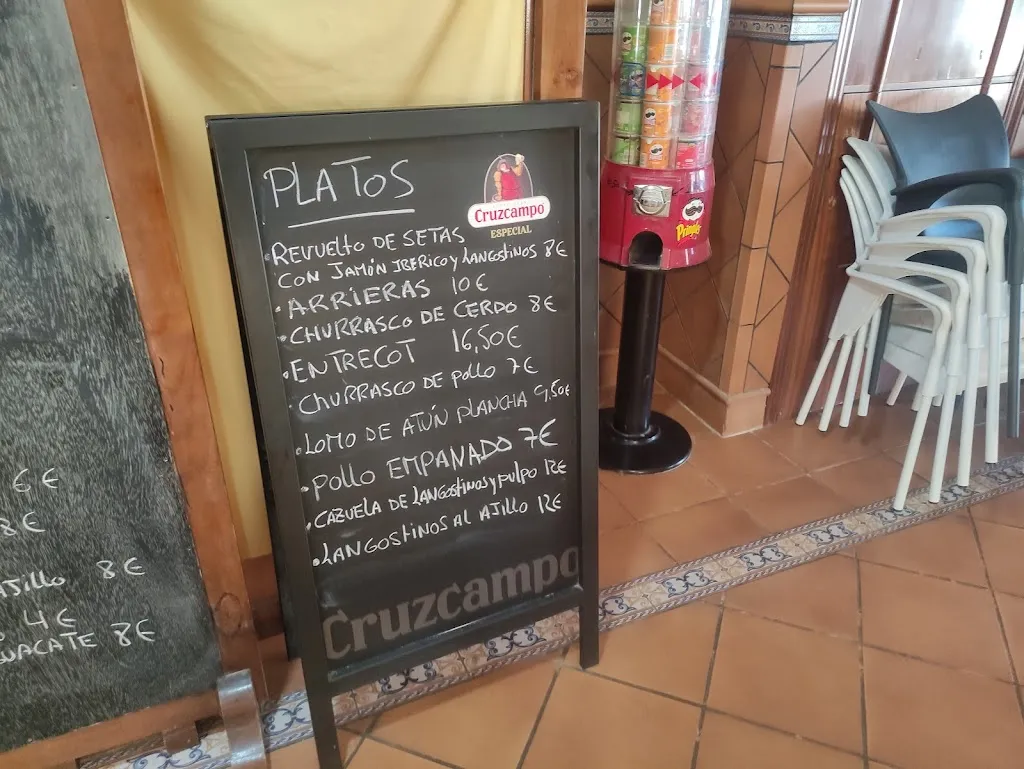 PLATOS
Cruzcampo
ESPECIAL
•REVUELTO DE SETAS
CON JAMÓN IBERICO Y LANGOSTINOS 8€
•ARRIERAS 10€
•CHURRASCO DE CERDO 8€
•ENTRECOT 16,50€
CHURRASCO DE POLLO 7€
•LOMO DE ATÚN PLANCHA 9,50€
•POLLO EMPANADO 7€
•CAZUELA DE LANGOSTINOS Y PULPO 12€
•LANGOSTINOS AL AJILLO 12€
Cruzcampo
Pringles
6€
8€
8€
4€
8€